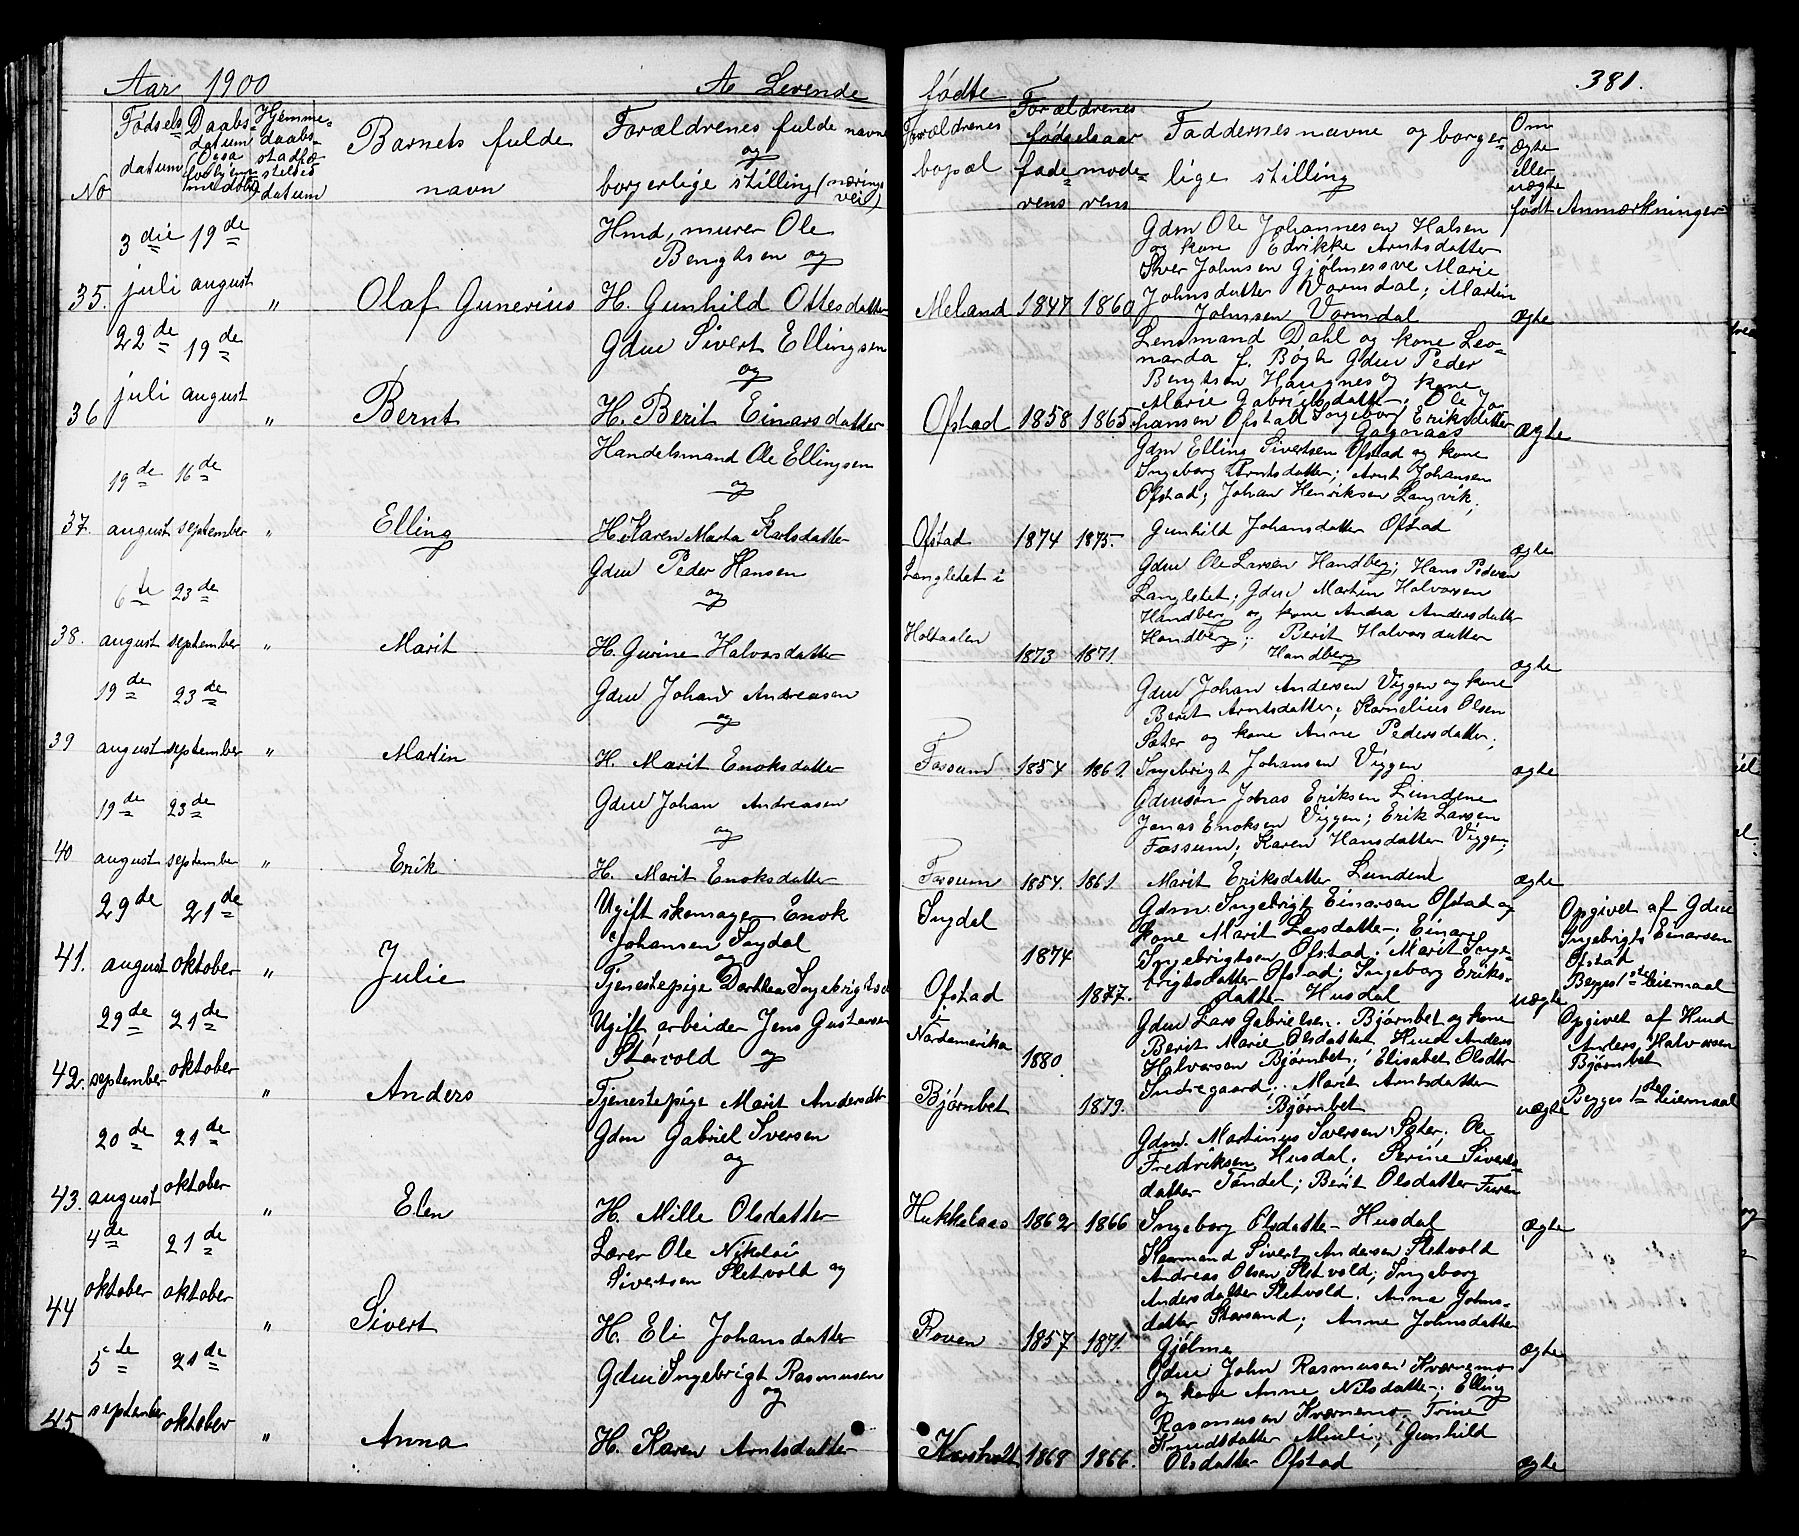 Aar 1900
A. Levende
No
Fødsels datum
Daabs datum
Hjemme-daabs stadfæstelses datum
Barnets fulde navn
Forældrenes fulde navne og borgerlige stilling (nærings vei)
3die juli 19de august
35. " Olaf Gunerius
Hmd, murer Ole
Bengtsen og
H. Gunhild Ottesdatter
22de juli 19de august
36 " Bernt
Gdm Sivert Ellingsen
og
H. Berit Einarsdatter
19de august 16de september
37. " Elling
Handelsmand Ole Ellingsen
og
H. Karen Marta Karlsdatter
6te august 23de september
38. " Marit
Gdm Peder Hansen
og
H. Gurine Halvorsdatter
19de august 23de september
39 " Martin
Gdm Johan Andreasen
og
H. Marit Enoksdatter
19de august 23de september
40 " Erik
Gdm Johan Andreasen
og
H. Marit Enoksdatter
29de august 21de oktober
41. " Julie
Ugift skomager Enok
Johansen Songdal
og
Tjenestepige Dorthea Ingebrigtsd
29de september 21de oktober
42. " Anders
Ugift arbeider Jens Gustavsen
Størvold og
Tjenestepige Marit Andersdtr
20de august 21de oktober
43. " Elen
Gdm Gabriel Iversen
og
H. Mille Olsdatter
4de oktober 21de oktober
44 " Sivert
Lærer Ole Nikolai
Sivertsen Sletvold og
H. Eli Johansdatter
5te september 21de oktober
45 " Anna
Gdm Ingebrigt Rasmusen
og
H. Karen Arntsdatter
fødte
381.
Forældrenes bopæl
Forældrenes fødselsaar
faderens moderens
Faddernes navne og borgerlige stilling
Om ægte eller uægte født
Anmærkninger
Meland 1847 1860
Gdm Ole Johannesen Halsen
og kone Edrikke Arntsdatter
Iver Johnsen Gjølmesøve Marie
Johnsdatter Vormdal; Martin
Johnsen Vormdal
ægte
Ofstad 1858 1865
Lensmand Dahl og kone Leo-
narda f. Bøgh Gdm Peder
Bengtsen Haugnes og kone
Marie Gabrielsdatter; Ole Jo-
hansen Ofstad Ingeborg Eriksdatter
Gagnaas
ægte
Ofstad 1874 1875.
Gdm Elling Sivertsen Ofstad og kone
Ingeborg Arntsdatter; Arnt Johansen
Ofstad; Johan Henriksen Langvik;
Gunhild Johansdatter Ofstad
ægte
Langletet i
Holtaalen 1873 1871.
Gdm Ole Larsen Handberg; Hans Pedersen
Langletet; Gdm Martin Halvorsen
Handberg og kone Andra Andersdatter
Handberg; Berit Halvorsdatter
Handberg
ægte
Fossum 1854 1861.
Gdm Johan Andersen Viggen og kone
Berit Arntsdatter; Kornelius Olsen
Sæter og kone Anne Pedersdatter;
Ingebrigt Johansen Viggen
ægte
Fossum 1854. 1861.
Gdmsøn Johas Eriksen Lundene
Jonas Enoksen Viggen; Erik Larsen
Fossum; Karen Hansdatter Viggen;
Marit Eriksdatter Lundene
ægte
Songdal
1874
Ofstad 1877.
Gdm. Ingebrigt Einarsen Ofstad og
kone Marit Larsdatter; Einar
Ingebrigtsen Ofstad; Marit Inge-
brigtsdatter Ofstad; Ingeborg Eriks-
datter Husdal
uægte
Opgivet af Gdm
Ingebrigt Einarsen
Ofstad
Begges 1ste leiermaal
Nordamerika
1880
Bjørnbet 1879.
Gdm Lars Gabrielsen. Bjørnbet og kone
Berit Marie Olsdatter Hmd Anders
Halvorsen Bjørnbet; Elisabet Olsdtr
Indregaard; Marit Arntsdatter
Bjørnbet
uægte
Opgivet af Hmd
Anders Halvorsen
Bjørnbet
Begges 1ste leiermaal
Hukkelaas 1862 1866
Gdm. Martinus Iversen Sæter; Ole
Fredriksen Husdal; Serine Siverts-
datter Tøndel; Berit Olsdatter Furen
Ingeborg Olsdatter Husdal
ægte
Roven 1857 1871.
Kaarmand Sivert Andersen Sletvold
Andreas Olsen Sletvold; Ingeborg
Andersdatter Sletvold. Anna Johns-
datter Storsand; Anne Johnsdatter
Gjølme
ægte
Karsholt 1868 1866.
Gdm John Rasmusen Kvernemo
og kone Anne Nilsdatter; Elling
Rasmusen Kvernemo. Trine
Knudtdatter Muli; Gunhild
Olsdatter Ofstad
ægte